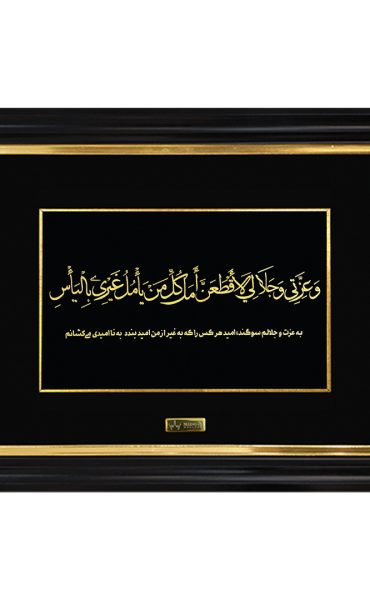 وَعِزَّتِي وَجَلَالِي لَأَقْطَعَنَّ أَمَلَ كُلِّ مَنْ يَأْمُلُ غَيْرِي بِالْيَأْسِ
به عزت و جلالم سوگند، امید هر کس را که به غیر از من امید بندد به نا امیدی می‌کشانم